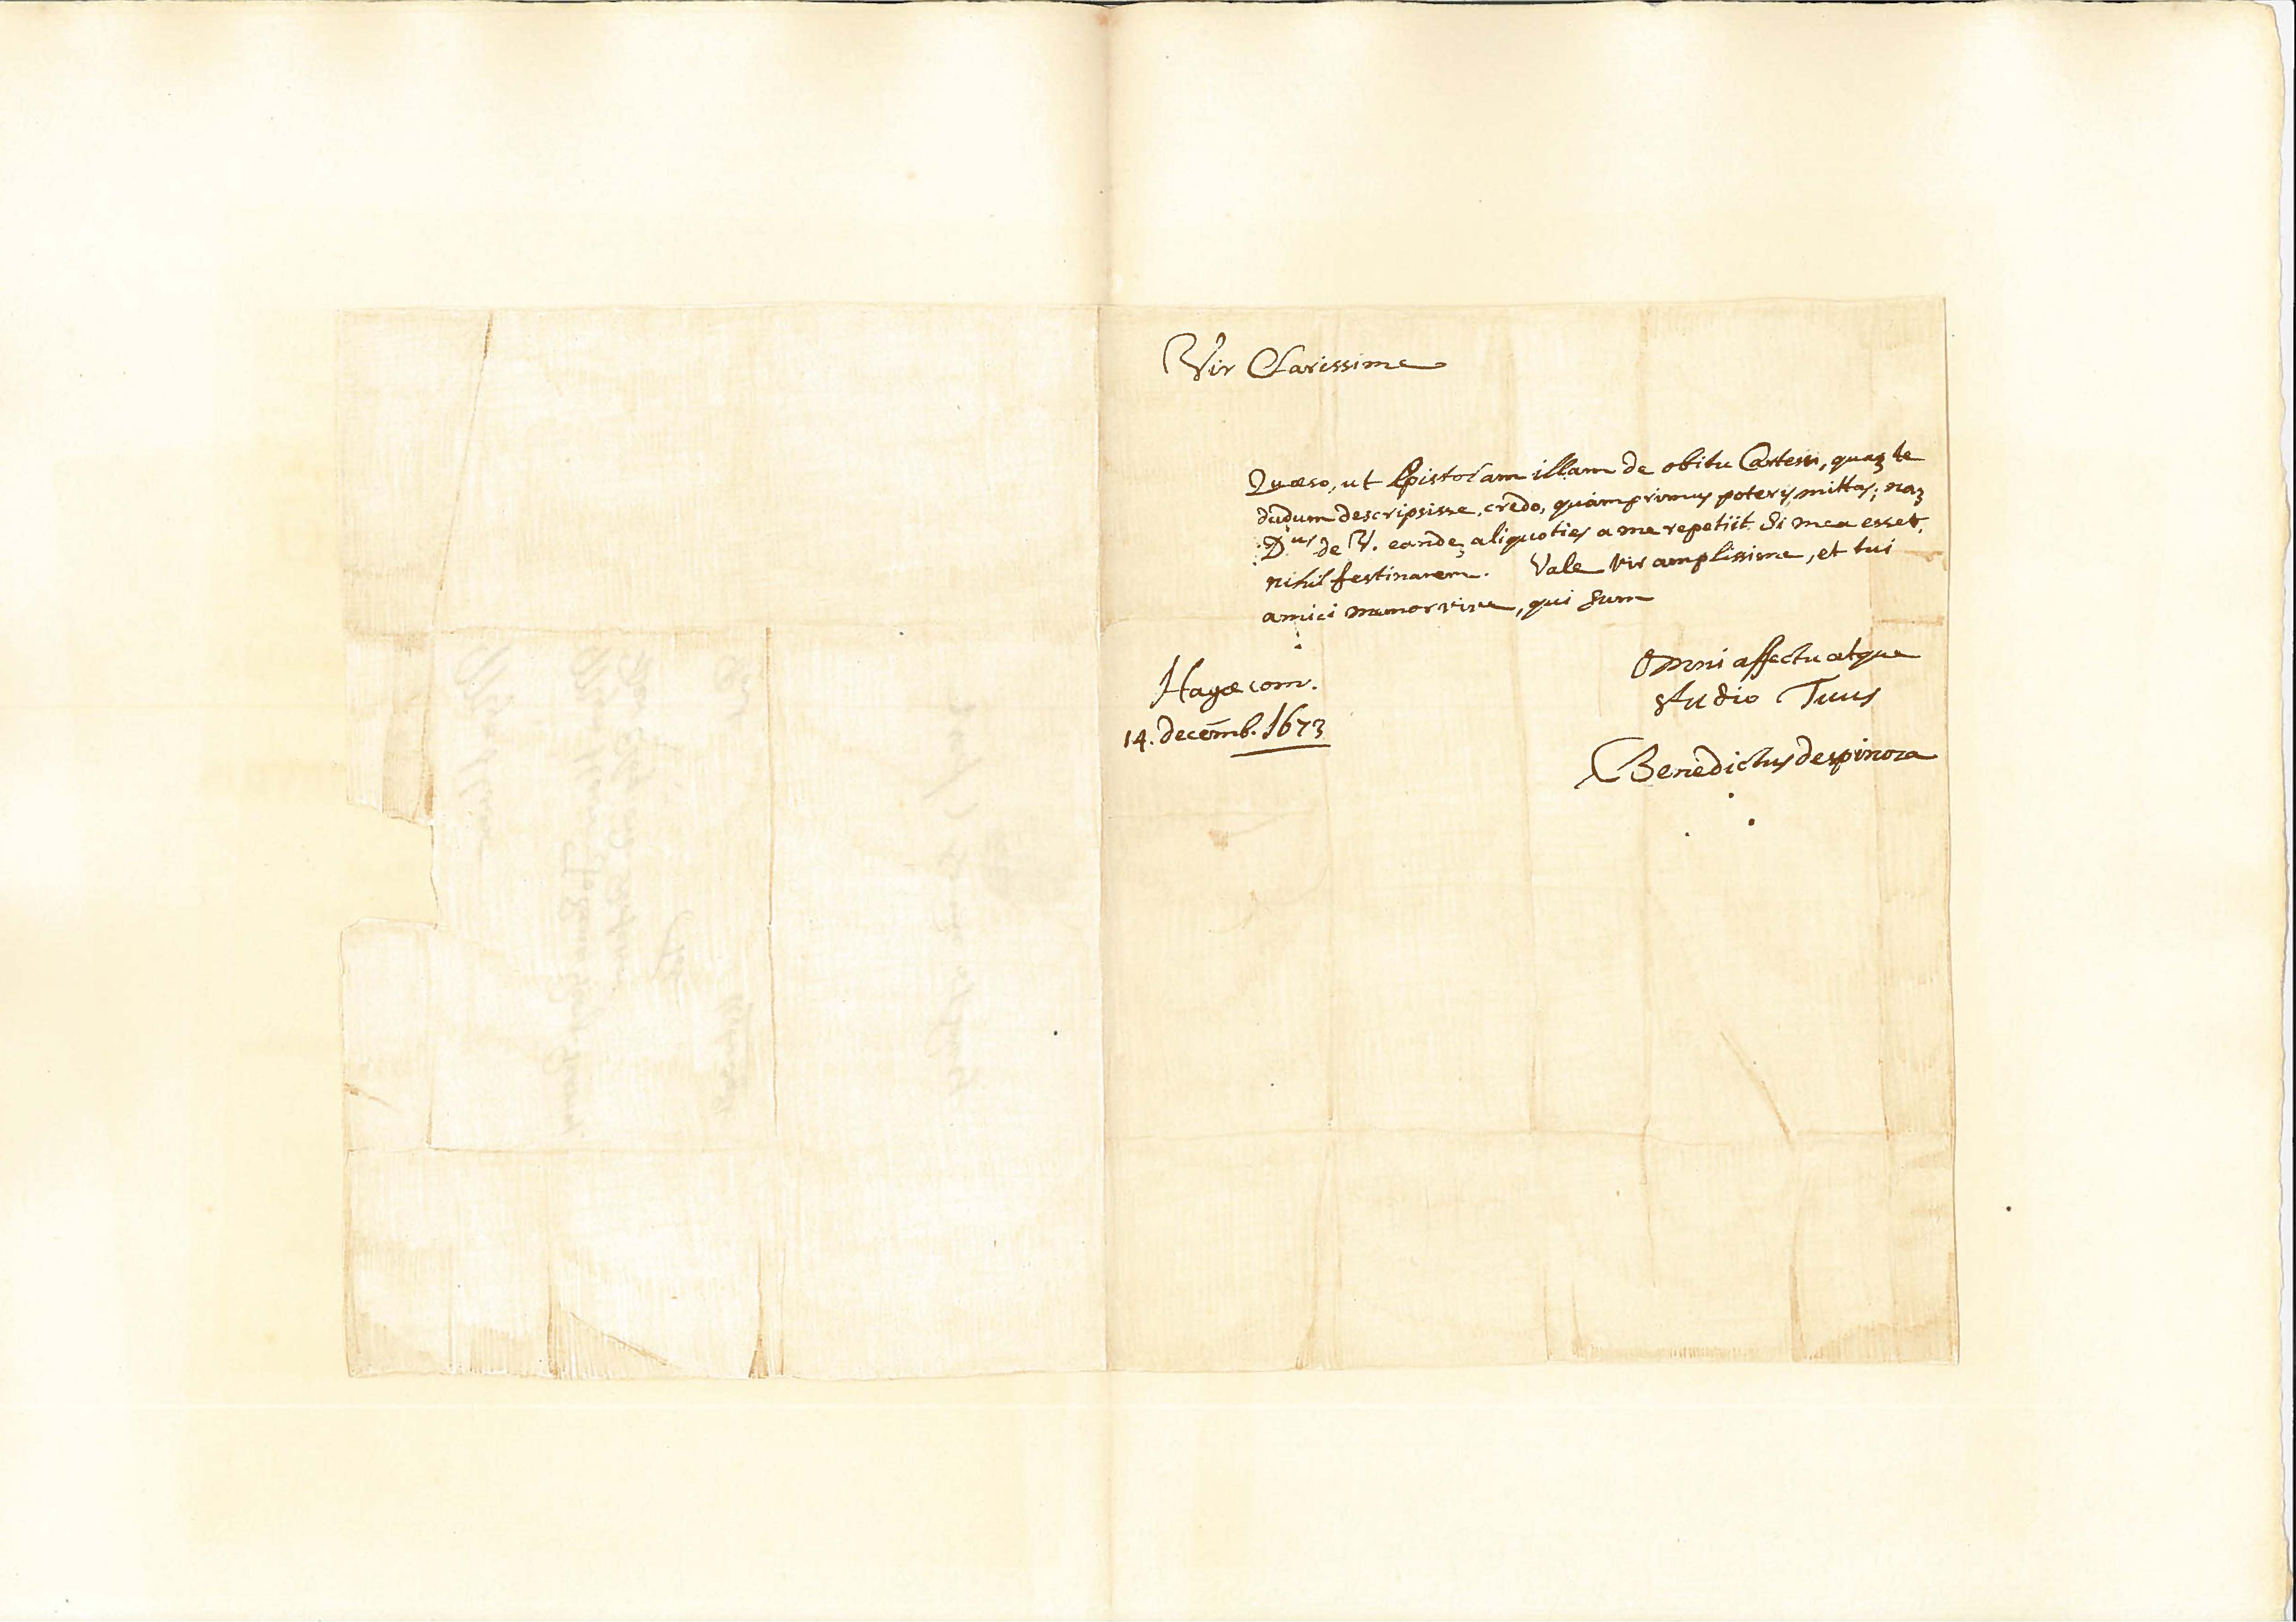 Vir Clarissime
Quæso, ut Epistolam illam de obitu Cartesii, quaꝫ te
dudum descripsisse, credo, quamprimus poteris, mittas; naꝫ
Dus de V. eandeꝫ aliquoties a me repetiit. Si mea esset,
nihil festinarem. Vale vir amplissime, et tui
amici memor vive, qui sum
Omni affectu atque
studio Tuus
Benedictus despinoza
Hagæ com.
14. decēmb. 1673